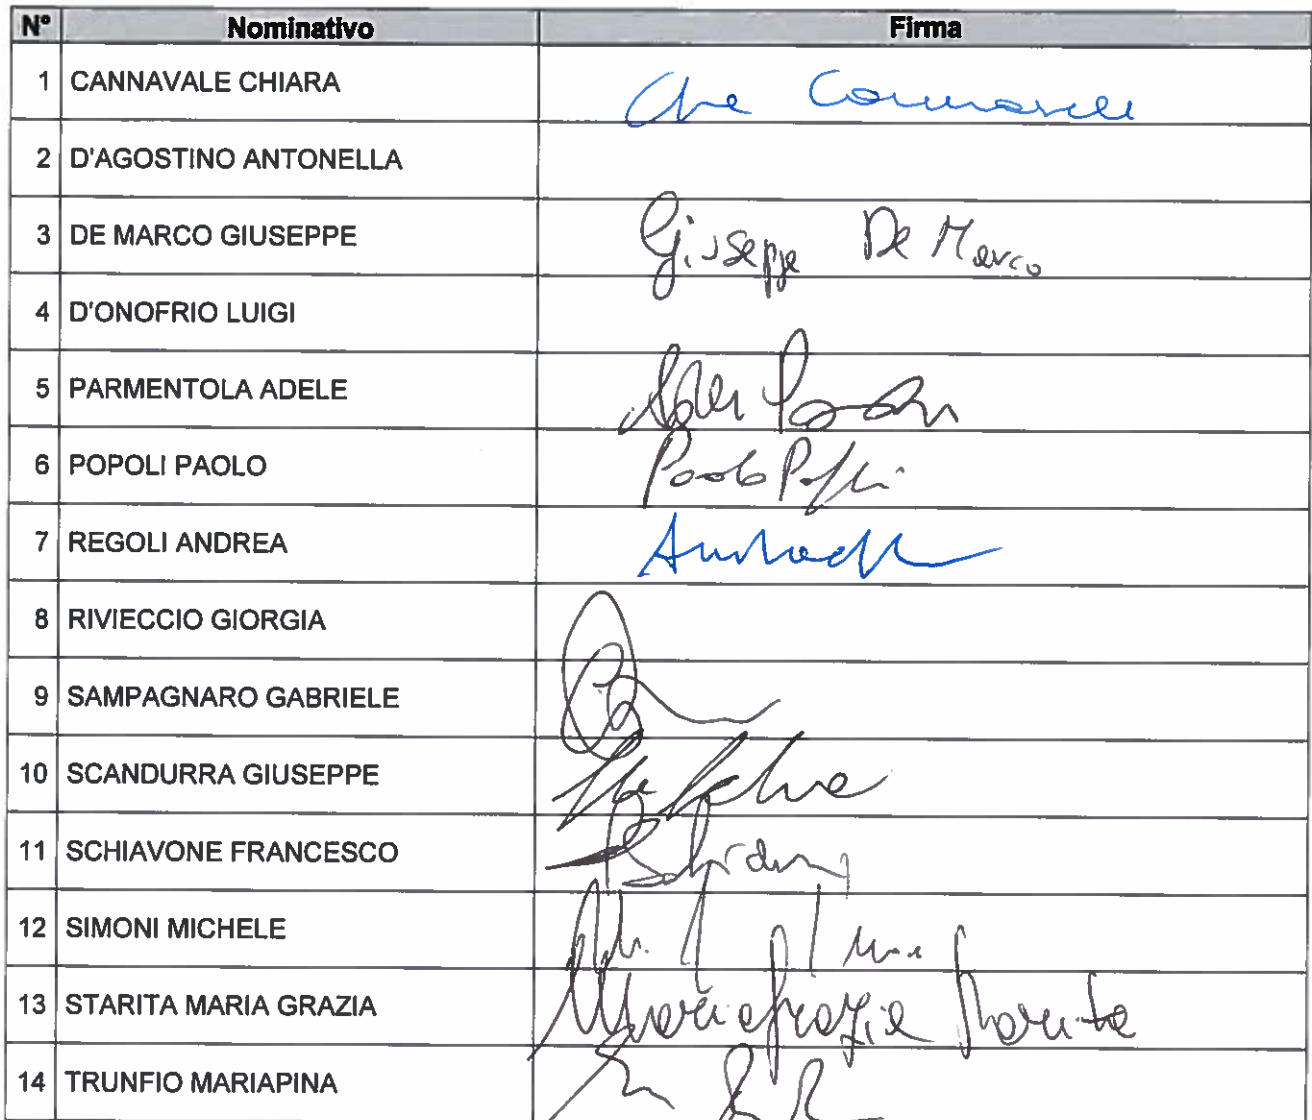 N° Nominativo Firma
1 CANNAVALE CHIARA
2 D'AGOSTINO ANTONELLA
3 DE MARCO GIUSEPPE Giuseppe De Marco
4 D'ONOFRIO LUIGI
5 PARMENTOLA ADELE
6 POPOLI PAOLO Paolo Popoli
7 REGOLI ANDREA
8 RIVIECCIO GIORGIA
9 SAMPAGNARO GABRIELE
10 SCANDURRA GIUSEPPE
11 SCHIAVONE FRANCESCO
12 SIMONI MICHELE
13 STARITA MARIA GRAZIA Mariagrazia Starita
14 TRUNFIO MARIAPINA